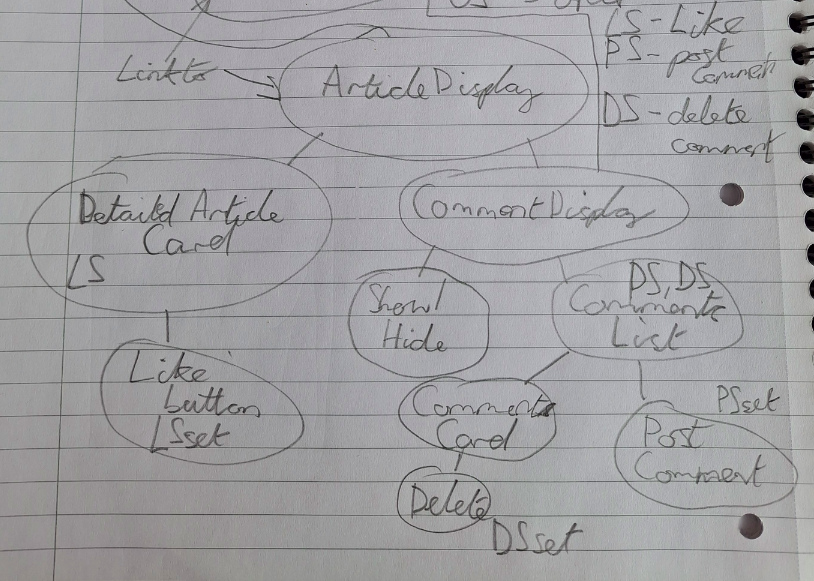 LS-Like
PS-post
Comment
DS-delete
comment
Linkto
ArticleDisplay
Detailed Article
Card
LS
CommentDisplay
Show/
Hide
DS, DS
Comments
List
Like
button
LSset
Comments
Card
PSset
Post
Comment
Delete
DSset